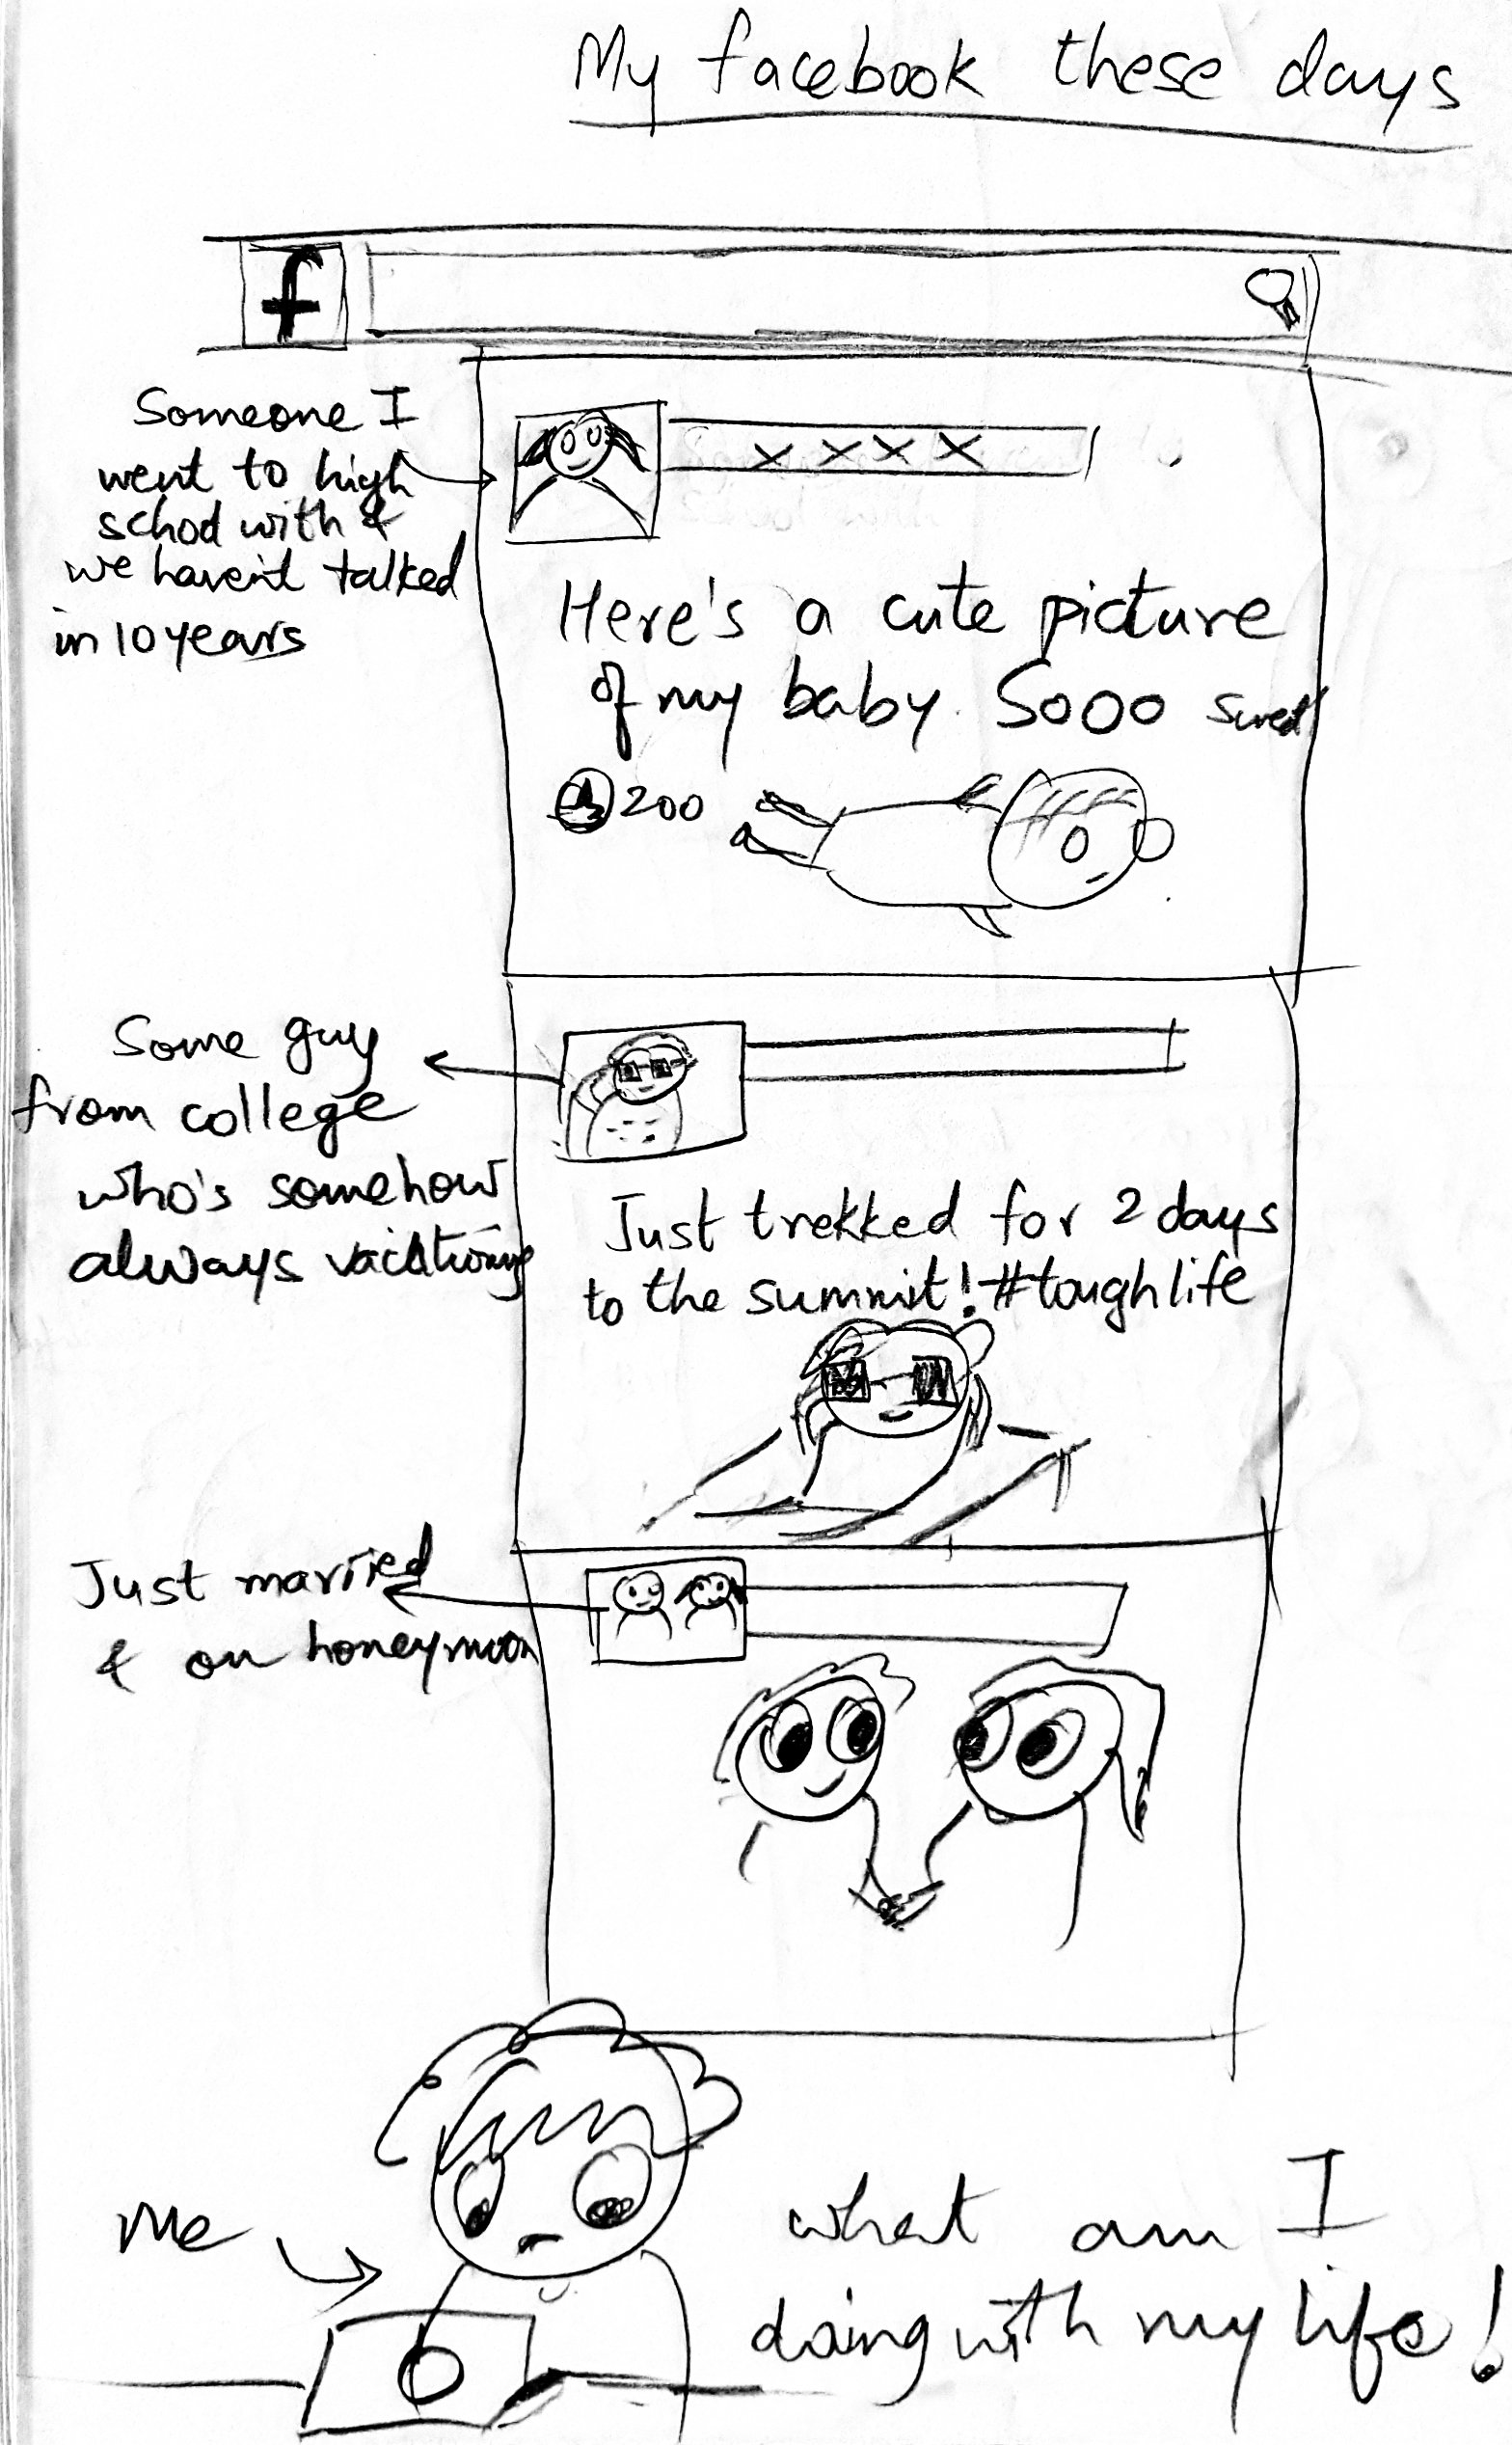 My facebook these days
f
Someone I
went to high
school with &
we haven't talked
in 10 years
X X X X
Here's a cute picture
of my baby. Sooo sweet
200
Some guy
from college
who's somehow
always vacationing
Just trekked for 2 days
to the summit! #toughlife
Just married
& on honeymoon
Me
what am I
doing with my life!